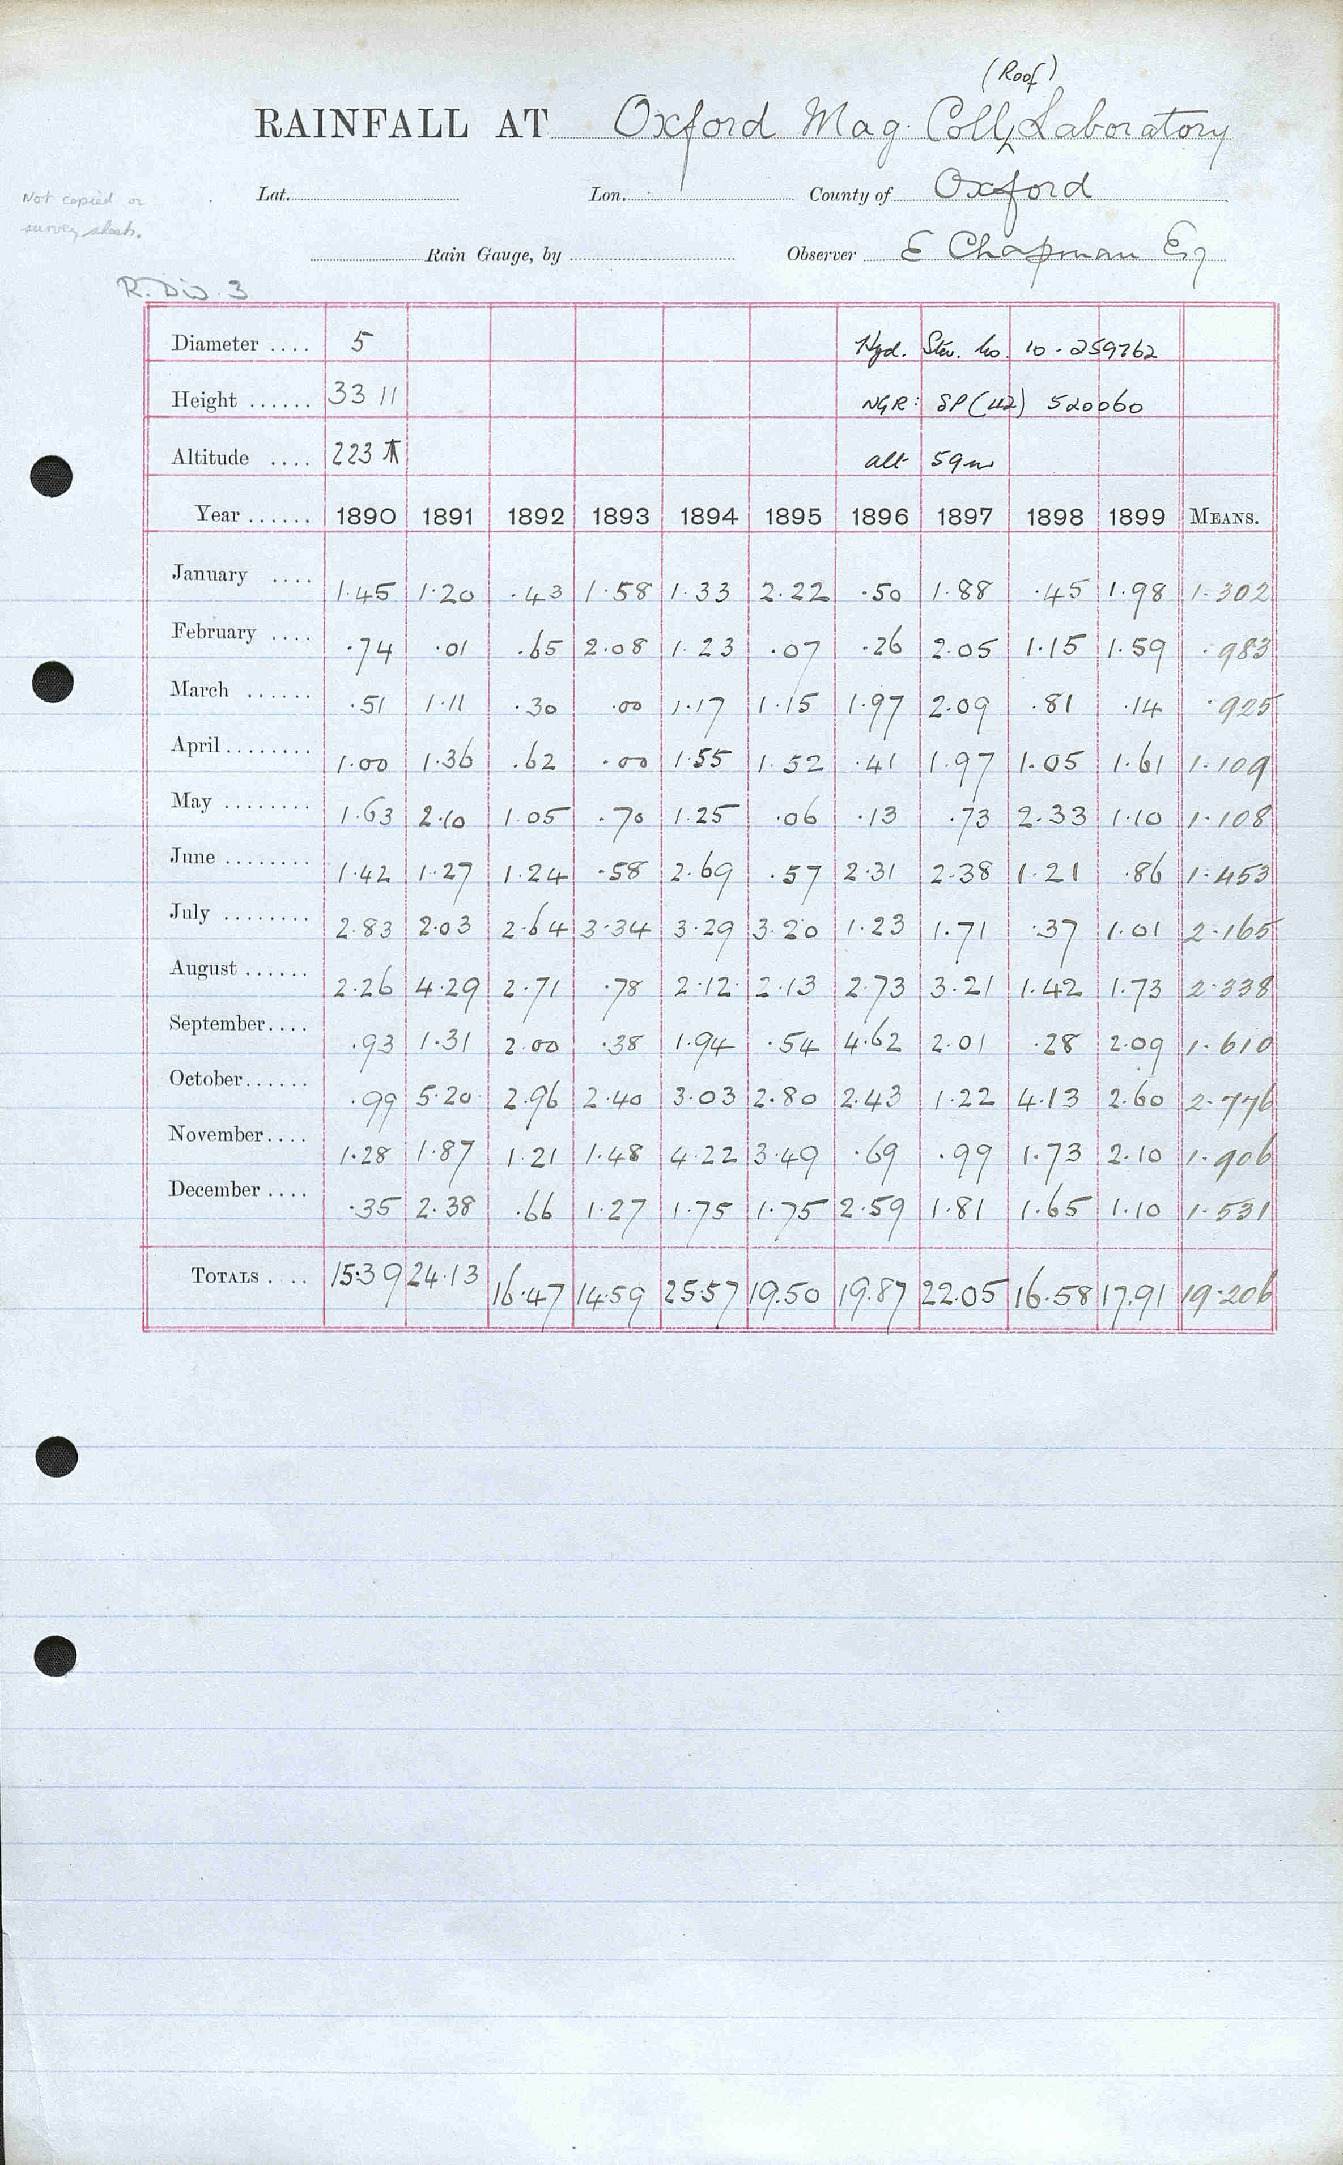 (Roof)
RAINFALL AT Oxford Mag. Coll, Laboratory
Not copied on
survey sheets.
Lat. Lon. County of Oxford
Rain Gauge, by Observer E Chapman Esq
R. Div. 3
Diameter .... 5 Hyd. Stn. No. 10.259762
Height ...... 33 11 NGR: SP(42) 520060
Altitude .... 223 alt 59m
Year ...... 1890 1891 1892 1893 1894 1895 1896 1897 1898 1899 MEANS.
January .... 1.45 1.20 .43 1.58 1.33 2.22 .50 1.88 .45 1.98 1.302
February .... .74 .01 .65 2.08 1.23 .07 .26 2.05 1.15 1.59 .983
March ...... .51 1.11 .30 .00 1.17 1.15 1.97 2.09 .81 .14 .925
April ........ 1.00 1.36 .62 .00 1.55 1.52 .41 1.97 1.05 1.61 1.109
May ........ 1.63 2.10 1.05 .70 1.25 .06 .13 .73 2.33 1.10 1.108
June ........ 1.42 1.27 1.24 .58 2.69 .57 2.31 2.38 1.21 .86 1.453
July ........ 2.83 2.03 2.64 3.34 3.29 3.20 1.23 1.71 .37 1.01 2.165
August ...... 2.26 4.29 2.71 .78 2.12 2.13 2.73 3.21 1.42 1.73 2.338
September.... .93 1.31 2.00 .38 1.94 .54 4.62 2.01 .28 2.09 1.610
October...... .99 5.20 2.96 2.40 3.03 2.80 2.43 1.22 4.13 2.60 2.776
November.... 1.28 1.87 1.21 1.48 4.22 3.49 .69 .99 1.73 2.10 1.906
December .... .35 2.38 .66 1.27 1.75 1.75 2.59 1.81 1.65 1.10 1.531
TOTALS .... 15.39 24.13 16.47 14.59 25.57 19.50 19.87 22.05 16.58 17.91 19.206